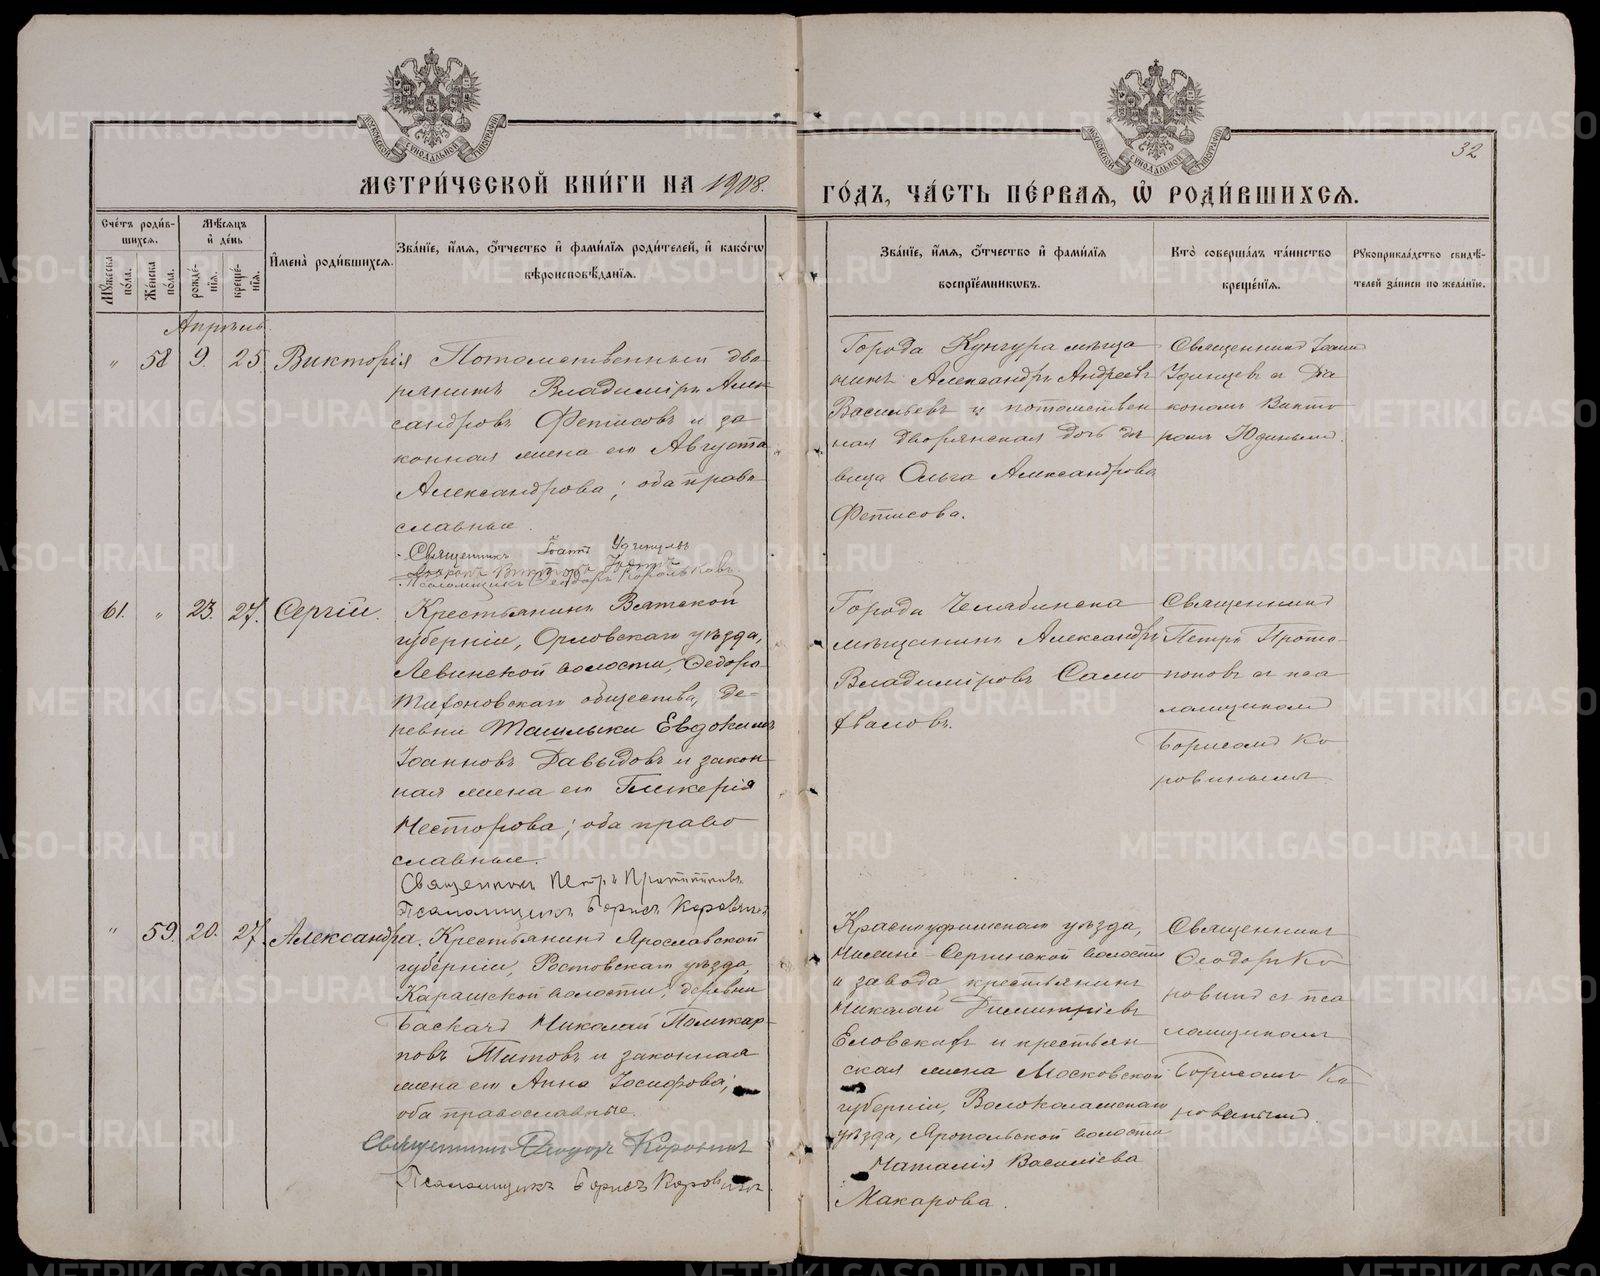 МЕТРИ́ЧЕСКОЙ КНИ́ГИ НА 1908.
ГО́ДЪ, ЧА́СТЬ ПЕ́РВАЯ, Ѡ҆ РОДИ́ВШИХСЯ.
32
Сче́тъ роди́в-
шихся.
Мѣ́сяцъ
и҆ де́нь
Му́жеска
по́ла.
Же́нска
по́ла.
рожде́-
нїя.
креще́-
нїя.
И҆мена̀ роди́вшихся.
Зва́нїе, и҆́мя, ѻ҆́тчество и҆ фами́лїя роди́телей, и҆ како́гѡ
вѣроисповѣ́данїя.
Зва́нїе, и҆́мя, ѻ҆́тчество и҆ фами́лїя
воспрїе́мникѡвъ.
Кто̀ соверша́лъ та́инство
креще́нїя.
Рукоприкла́дство свидѣ́-
телей за́писи по жела́нїю.
Апрѣль.
" 58 9. 25. Викторія
Потомственный дво-
рянинъ Владиміръ Алек-
сандровъ Фетисовъ и за
конная жена его Августа
Александрова; оба право
славные.
Священникъ Іоаннъ Удинцевъ
Діаконъ Викторъ Юдинъ
Псаломщикъ Ѳеодоръ Корольковъ
Города Кунгура мѣща
нинъ Александръ Андреевъ
Васильевъ и потомствен
ная дворянская дочь дѣ
вица Ольга Александрова
Фетисова.
Священникъ Іоаннъ
Удинцевъ съ Діа
кономъ Викто
ромъ Юдинымъ.
61. " 23. 27. Сергій.
Крестьянинъ Вятской
губерніи, Орловскаго уѣзда,
Левинской волости, Ѳедоро-
Тихоновскаго общества, де-
ревни Ташлыки Евдокимъ
Іоанновъ Давыдовъ и закон-
ная жена его Гликерія
Несторова; оба право
славные.
Священникъ Петръ Протопоповъ
Псаломщикъ Борисъ Коровинъ
Города Челябинска
мѣщанинъ Александръ
Владиміровъ Само
хваловъ.
Священникъ
Петръ Прото-
поповъ съ пса
ломщикомъ
Борисомъ Ко
ровинымъ
" 59. 20. 27. Александра.
Крестьянинъ Ярославской
губерніи, Ростовскаго уѣзда,
Карашской волости, деревни
Баскачъ Николай Поликар-
повъ Титовъ и законная
жена его Анна Іосифова;
оба православные.
Священникъ Ѳеодоръ Коровинъ
Псаломщикъ Борисъ Коровинъ.
Красноуфимскаго уѣзда,
Нижне-Сергинской волости
и завода, крестьянинъ
Николай Димитріевъ
Еловскихъ и крестьян
ская жена Московской
губерніи, Волоколамскаго
уѣзда, Яропольской волости
Наталія Василіева
Макарова.
Священникъ
Ѳеодоръ Ко
ровинъ съ пса
ломщикомъ
Борисомъ Ко
ровинымъ.
METRIKI.GASO-URAL.RU